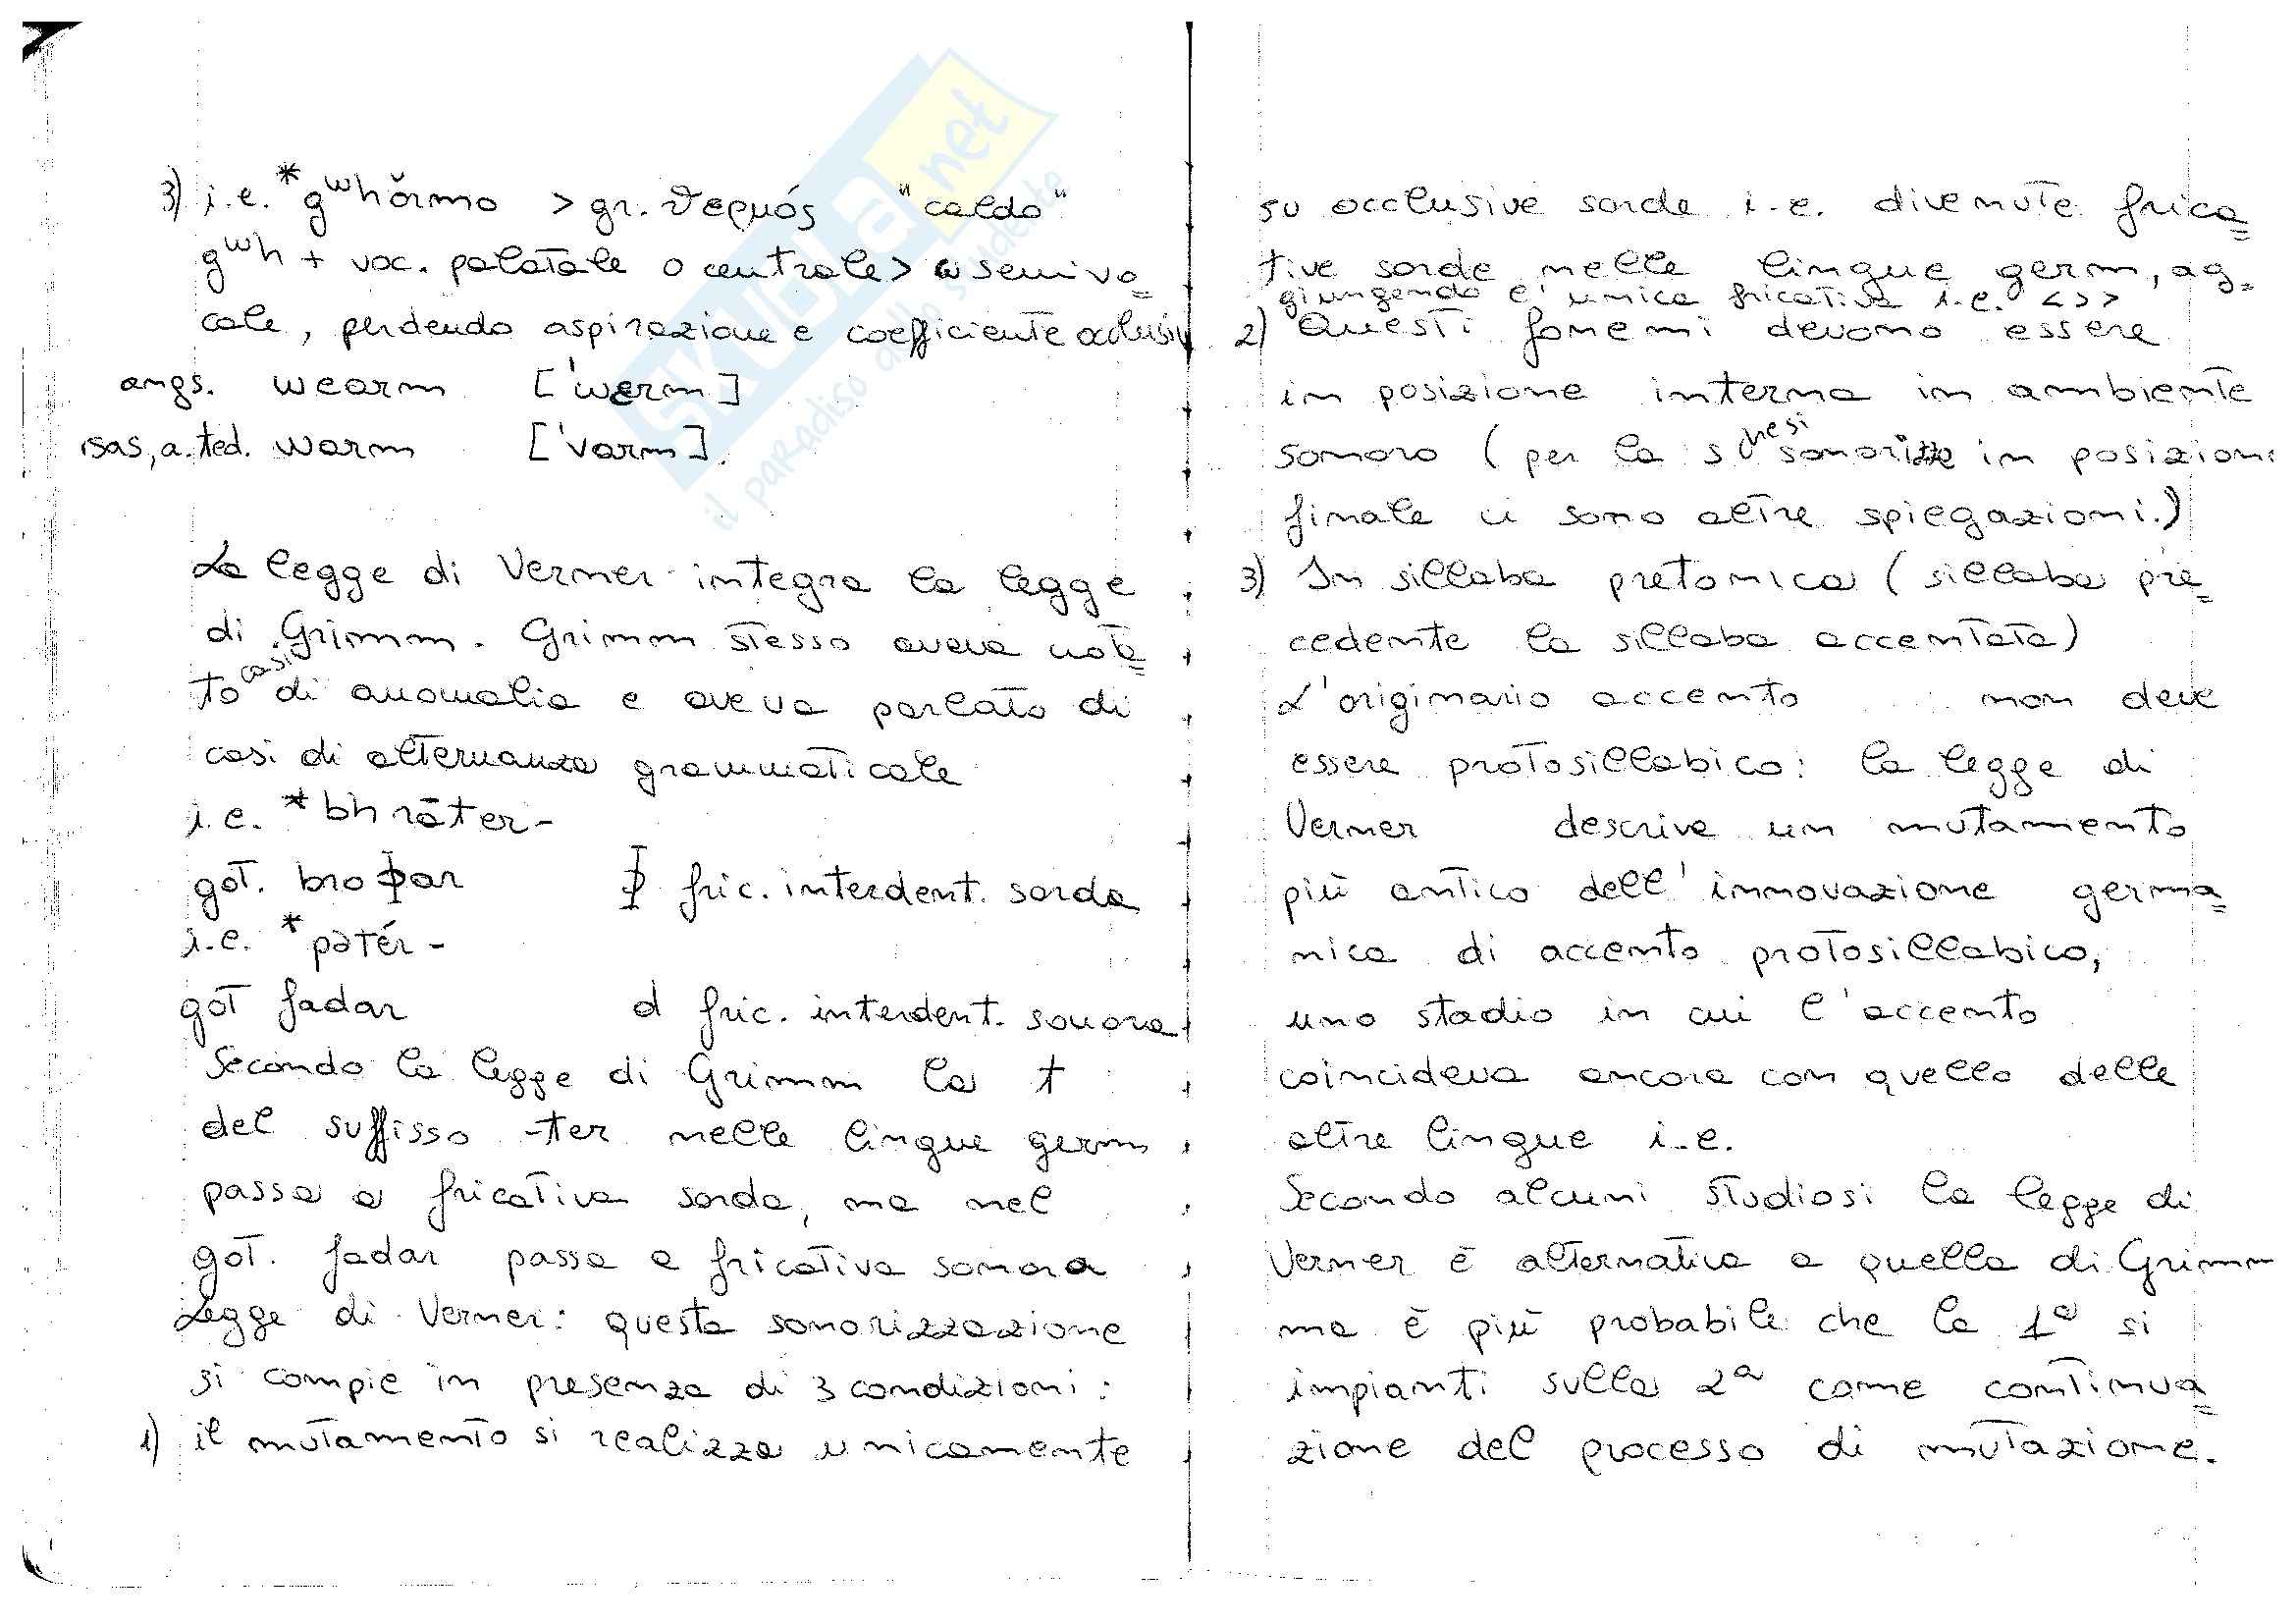 3) i.e. *gʷhŏrmo > gr. ϑερμós "caldo"
gʷh + voc. palatale o centrale > a semivo=
cale, perdendo aspirazione e coefficiente occlusiv
angs. wearm ['werm]
sas, a. ted. warm ['varm].
La legge di Verner integra la legge
di Grimm. Grimm stesso aveva nota=
to casi di anomalia e aveva parlato di
casi di alternanza grammaticale
i.e. *bhrāter-
got. broþar þ fric. interdent. sorda
i.e. *pətér-
got fadar d fric. interdent. sonora
Secondo la legge di Grimm la t
del suffisso -ter nelle lingue germ
passa a fricativa sorda, ma nel
got. fadar passa a fricativa sonora
Legge di Verner: questa sonorizzazione
si compie in presenza di 3 condizioni:
1) il mutamento si realizza unicamente
su occlusive sorde i.e. divenute frica=
tive sorde nelle lingue germ, ag=
giungendo l'unica fricativa i.e. <s>
2) Questi fonemi devono essere
in posizione interna in ambiente
sonoro (per la s in posizion
finale ci sono altre spiegazioni.)
3) In sillaba pretonica (sillaba pre=
cedente la sillaba accentata)
L'originario accento non deve
essere protosillabico: la legge di
Verner descrive un mutamento
più antico dell'innovazione germa=
nica di accento protosillabico,
uno stadio in cui l'accento
coincideva ancora con quello delle
altre lingue i.e.
Secondo alcuni studiosi la legge di
Verner è alternativa a quella di Grimm
ma è più probabile che la 1ª si
impianti sulla 2ª come continua=
zione del processo di mutazione.
SKUOLA.net
il paradiso dello studente